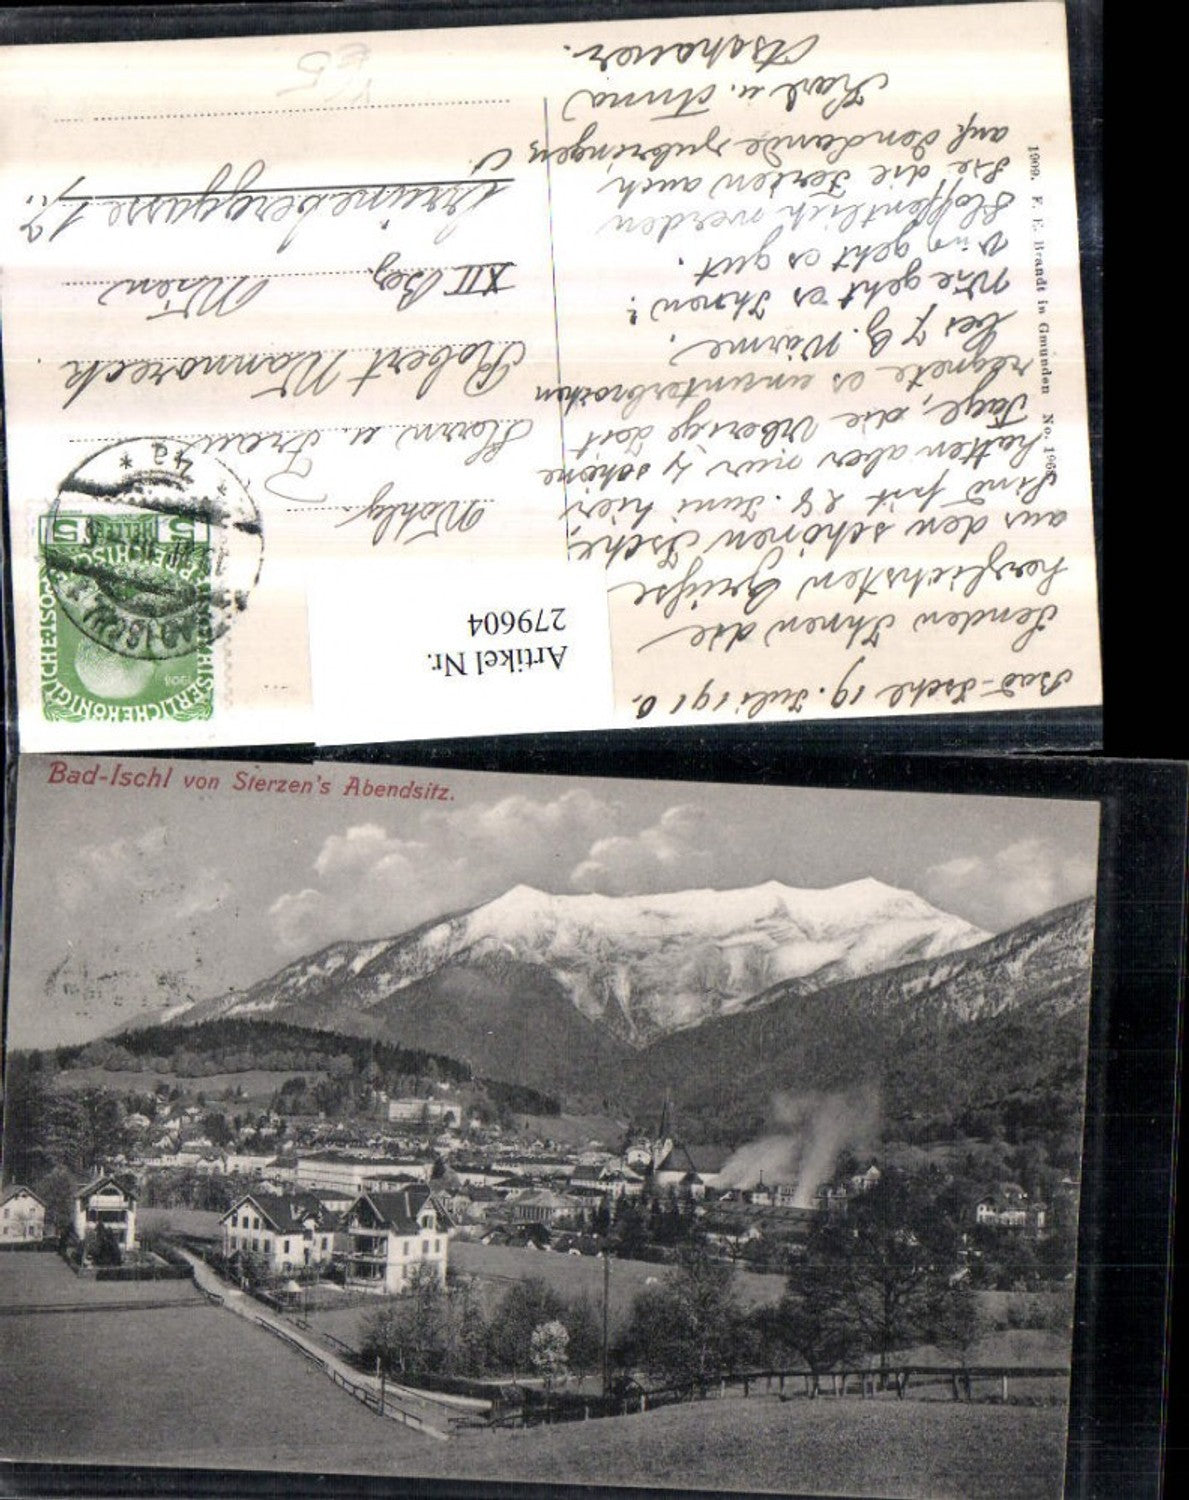 Bad-Ischl 19. Juli 1910.
Senden Ihnen die
herzlichsten Grüße
aus dem schönen Ischl,
Sind seit 28. Juni hier
hatten aber nur 4 schöne
Tage, die Übrige Zeit
regnete es ununterbrochen
bei 7 G. Wärme.
Wie geht es Ihnen?
Uns geht es gut.
Hoffentlich werden
Sie die Ferien auch
auf dem Lande zubringen
Karl u. Anna
Wohlg.
Herrn u. Frau
Robert Wannoreck
XII Bez. Wien
Grünebergasse 17.
1909. F. E. Brandt in Gmunden No. 1968
Artikel Nr.
279604
KAISERLICHE KÖNIGLICHE
1908
5 HELLER 5
BAD ISCHL
* 4a *
Bad-Ischl von Sterzen's Abendsitz.